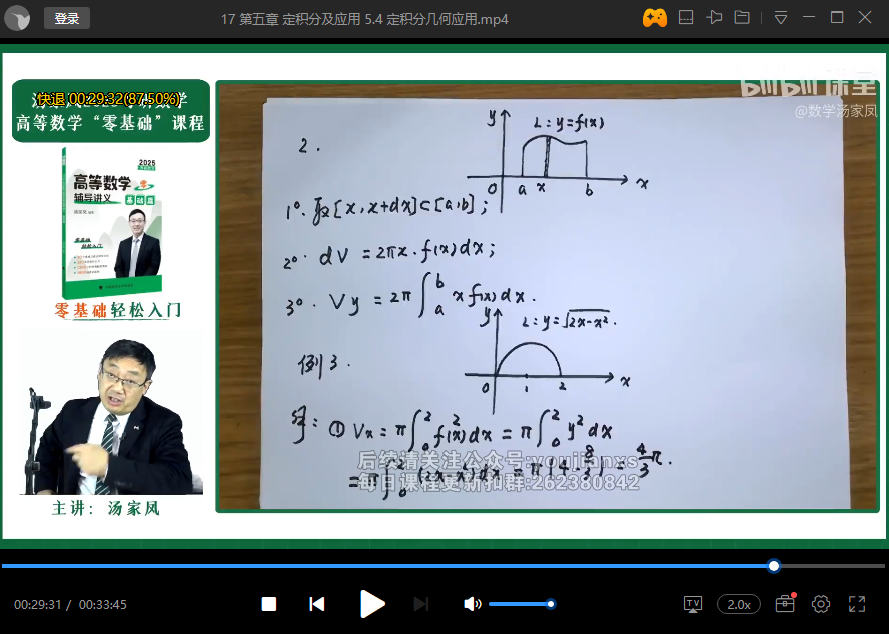 登录
17 第五章 定积分及应用 5.4 定积分几何应用.mp4
快退 00:29:32(87.50%)
高等数学“零基础”课程
2025
高等数学
辅导讲义
基础篇
零基础
轻松入门
零基础轻松入门
主讲：汤家凤
bilibili 课堂
@数学汤家凤
2.
y
L: y=f(x)
0 a x b x
1°. 取[x, x+dx]⊂[a,b];
2°. dV =2πx·f(x)dx;
3°. Vy =2π∫_a^b xf(x)dx.
y
L: y=√(2x-x²).
例3.
0 1 2 x
解: ① Vx=π∫_0^2 f²(x)dx = π∫_0^2 y²dx
=π∫_0^2 (2x-x²)dx = π(4-8/3) = 4/3 π.
后续请关注公众号:youjianxs
每日课程更新扣群:262380842
00:29:31 / 00:33:45
TV
2.0x